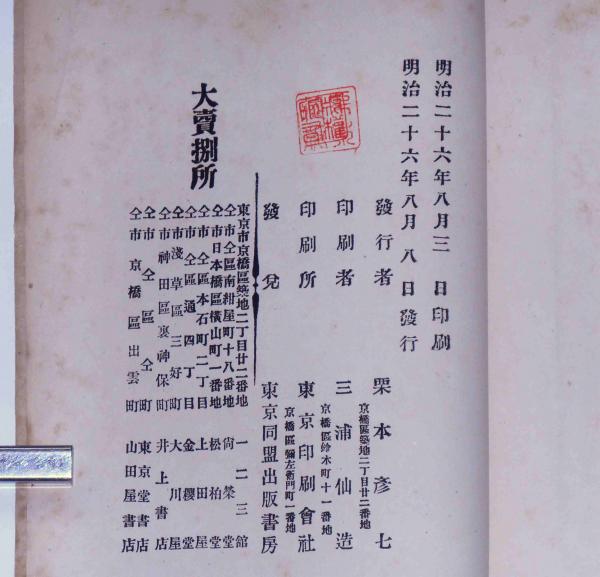 明治二十六年八月三日印刷
明治二十六年八月八日發行
發行者 栗本彥七
京橋區築地二丁目廿二番地
印刷者 三浦仙造
京橋區鈴木町十一番地
印刷所 東京印刷會社
京橋區彌左衛門町一番地
發兌 東京同盟出版書房
大賣捌所
東京市京橋區築地二丁目廿二番地 一二三館
仝市仝區南紺屋町十八番地 尙榮堂
仝市日本橋區橫山町一番地 松柏堂
仝市仝區本石町二丁目 上田屋
仝市仝區通四丁目 金櫻堂
仝市淺草區三好町 大川屋
仝市神田區裏神保町 井上書店
仝市仝區仝町 東京堂書店
仝市京橋區出雲町 山田屋書店